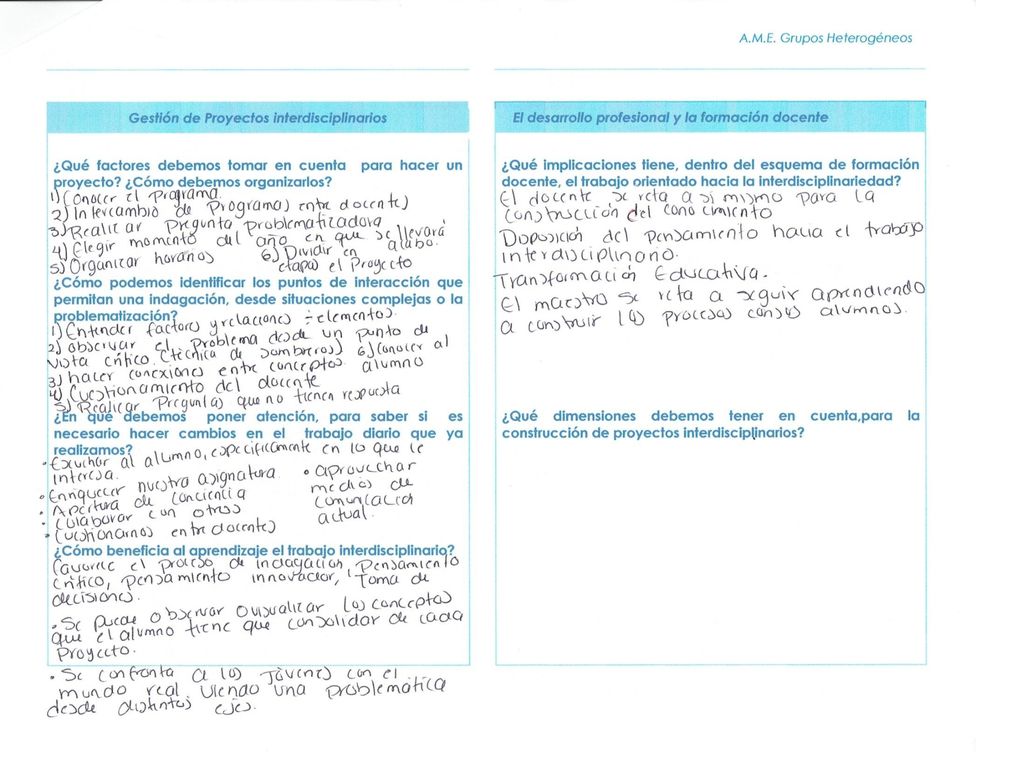 A.M.E. Grupos Heterogéneos
Gestión de Proyectos interdisciplinarios
¿Qué factores debemos tomar en cuenta para hacer un
proyecto? ¿Cómo debemos organizarlos?
1) Conocer el Programa.
2) Intercambio de Programas entre docentes
3) Realizar Pregunta Problematizadora
4) Elegir momento del año en que se llevará
a cabo.
5) Organizar horarios 6) Dividir en
etapas el Proyecto
¿Cómo podemos identificar los puntos de interacción que
permitan una indagación, desde situaciones complejas o la
problematización?
1) Entender factores y relaciones ÷ elementos.
2) observar el Problema desde un punto de
vista crítico (técnica de sombreros) 6) Conocer al
alumno
3) hacer conexiones entre conceptos.
4) Cuestionamiento del docente
5) Realizar Preguntas que no tienen respuesta
¿En qué debemos poner atención, para saber si es
necesario hacer cambios en el trabajo diario que ya
realizamos?
• Escuchar al alumno, específicamente en lo que le
interesa.
• Enriquecer nuestra asignatura
• Apertura de conciencia
• Colaborar con otros
• Cuestionarnos entre docentes
• aprovechar
medios de
comunicación
actual.
¿Cómo beneficia al aprendizaje el trabajo interdisciplinario?
Favorece el proceso de indagación, Pensamiento
crítico, pensamiento innovador, Toma de
decisiones.
• Se puede observar o visualizar los conceptos
que el alumno tiene que consolidar de cada
Proyecto.
• Se confronta a los jóvenes con el
mundo real viendo una problemática
desde distintos ejes.
El desarrollo profesional y la formación docente
¿Qué implicaciones tiene, dentro del esquema de formación
docente, el trabajo orientado hacia la interdisciplinariedad?
El docente se reta a sí mismo para la
construcción del conocimiento
Disposición del pensamiento hacia el trabajo
interdisciplinario.
Transformación Educativa.
El maestro se reta a seguir aprendiendo
a construir los procesos con sus alumnos.
¿Qué dimensiones debemos tener en cuenta,para la
construcción de proyectos interdisciplinarios?